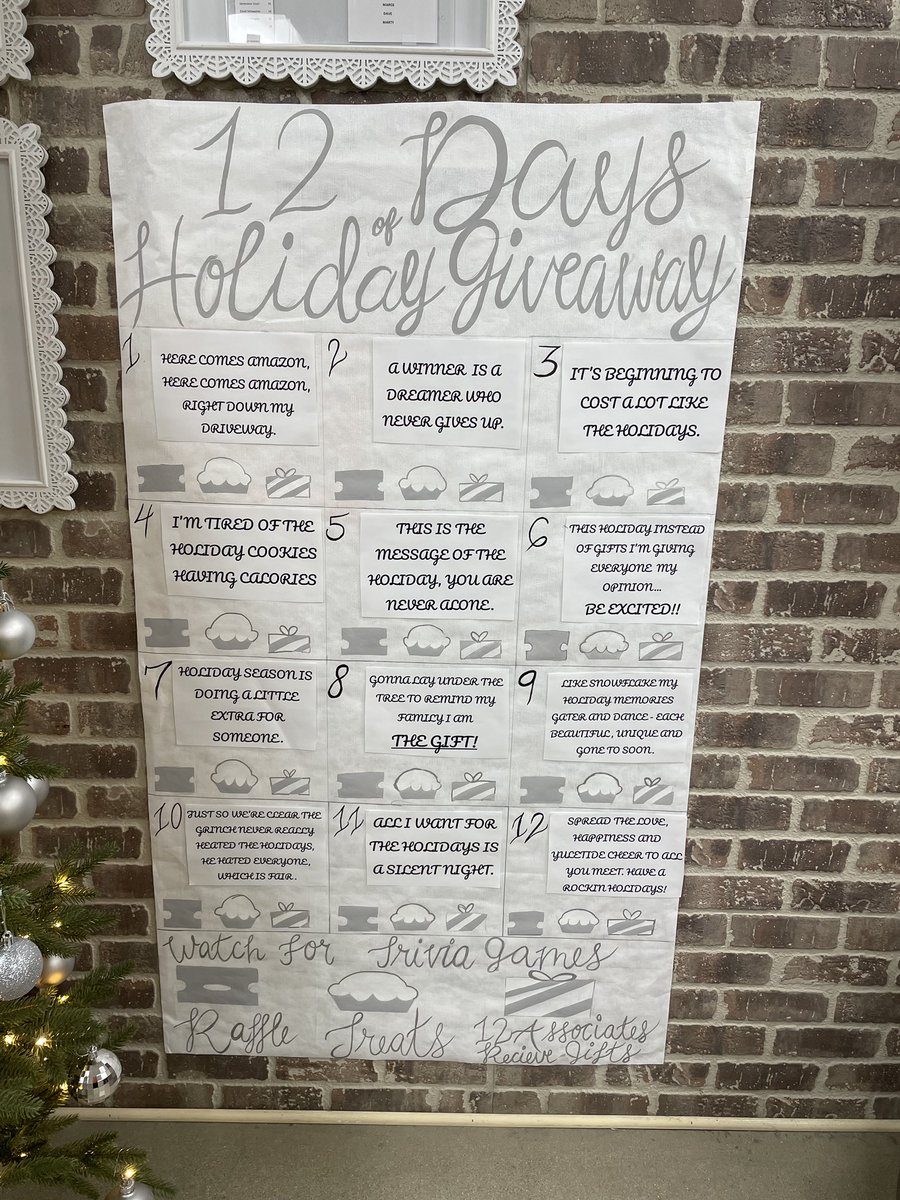 MARGE
DAVE
MARTI
12 Days
of
Holiday Giveaway
1
HERE COMES AMAZON,
HERE COMES AMAZON,
RIGHT DOWN MY
DRIVEWAY.
2
A WINNER IS A
DREAMER WHO
NEVER GIVES UP.
3
IT'S BEGINNING TO
COST A LOT LIKE
THE HOLIDAYS.
4
I'M TIRED OF THE
HOLIDAY COOKIES
HAVING CALORIES
5
THIS IS THE
MESSAGE OF THE
HOLIDAY, YOU ARE
NEVER ALONE.
6
THIS HOLIDAY INSTEAD
OF GIFTS I'M GIVING
EVERYONE MY
OPINION...
BE EXCITED!!
7
HOLIDAY SEASON IS
DOING A LITTLE
EXTRA FOR
SOMEONE.
8
GONNA LAY UNDER THE
TREE TO REMIND MY
FAMILY I AM
THE GIFT!
9
LIKE SNOWFLAKE MY
HOLIDAY MEMORIES
GATER AND DANCE - EACH
BEAUTIFUL, UNIQUE AND
GONE TO SOON.
10
JUST SO WE'RE CLEAR THE
GRINCH NEVER REALLY
HEATED THE HOLIDAYS,
HE HATED EVERYONE,
WHICH IS FAIR.
11
ALL I WANT FOR
THE HOLIDAYS IS
A SILENT NIGHT.
12
SPREAD THE LOVE,
HAPPINESS AND
YULETIDE CHEER TO ALL
YOU MEET. HAVE A
ROCKIN HOLIDAYS!
Watch For Trivia Games
Raffle
Treats
12 Associates
Recieve Gifts